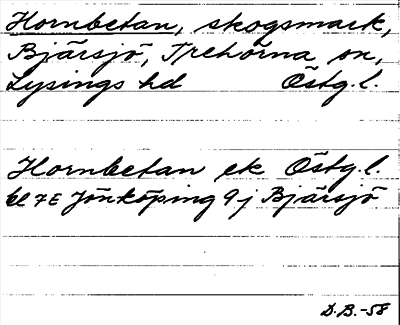 Hornbetan, skogsmark,
Bjärsjö, Trehörna sn,
Lysings hd Östg.l.
Hornbetan ek Östg.l.
bl 7E Jönköping 9j Bjärsjö
D.B.-58